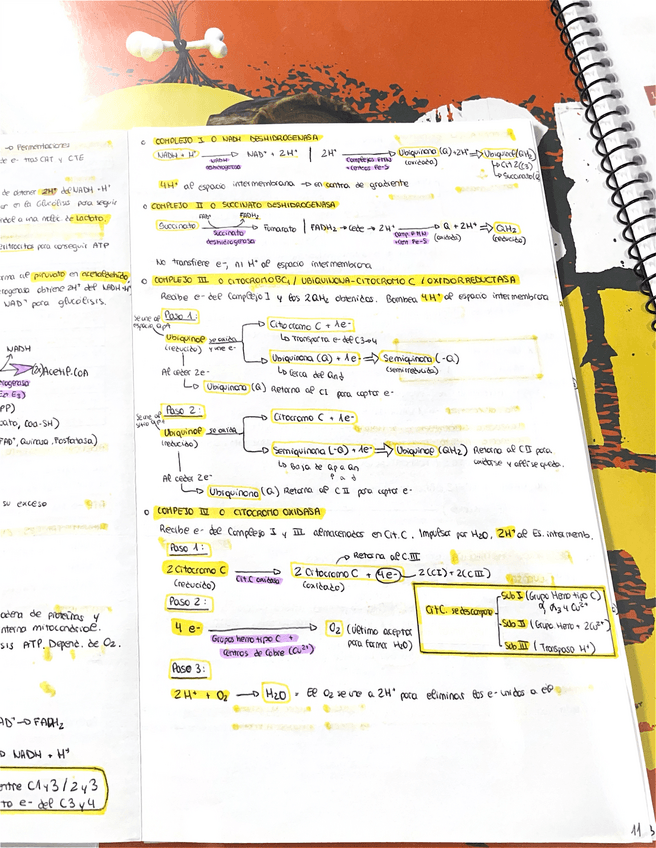 → Fermentaciones
de e- tras CAT y CTE
de obtener 2H⁺ del NADH+H⁺
en la Glucólisis para seguir
molec. de lactato.
eritrocitos para conseguir ATP
al piruvato en acetaldehído
obtiene 2H⁺ del NADH+H⁺
NAD⁺ para glucólisis.
NADH
(2) Acetil-CoA
(PP)
CoA-SH)
su exceso
de proteínas y
interna mitocondrial.
ATP. Depend. de O₂.
→ FADH₂
→ NADH + H⁺
entre C1 y 3 / 2 y 3
e- del C3 y 4
COMPLEJO I O NADH DESHIDROGENASA
NADH + H⁺ → NAD⁺ + 2H⁺ | 2H⁺ → Ubiquinona (Q) + 2H⁺ ⇒ Ubiquinol (QH₂)
NADH deshidrogenasa
Complejo FMN + centros Fe-S
(oxidado)
→ Cit 2 (C3)
→ Succinato (Q)
4H⁺ al espacio intermembrana → en contra de gradiente
COMPLEJO II O SUCCINATO DESHIDROGENASA
FAD⁺ FADH₂
Succinato → Fumarato | FADH₂ → cede → 2H⁺ → Q + 2H⁺ ⇒ QH₂
Succinato deshidrogenasa
Comp. FMN + cen. Fe-S
(oxidado)
(reducido)
No transfiere e-, ni H⁺ al espacio intermembrana
COMPLEJO III O CITOCROMO BC₁ / UBIQUINONA-CITOCROMO C / OXIDORREDUCTASA
Recibe e- del Complejo I y los 2QH₂ obtenidos. Bombea 4H⁺ al espacio intermembrana
Paso 1:
Se une al espacio Qp↑
Ubiquinol se oxida
(reducido) y une e-
Citocromo C + 1e-
↳ Transporta e- del C3→4
Ubiquinona (Q) + 1e- ⇒ Semiquinona (-Q)
↳ Cerca de Qn↓
(semirreducida)
Al ceder 2e-
↳ Ubiquinona (Q) Retorna al CI para captar e-
Paso 2:
Se une al sitio Qp↑
Ubiquinol se oxida
(reducido)
Citocromo C + 1e-
Semiquinona (-Q) + 1e- ⇒ Ubiquinol (QH₂) Retorna al CII para
oxidarse y allí se queda.
↳ Baja de Qp a Qn
↑ a ↓
Al ceder 2e-
↳ Ubiquinona (Q) Retorna al CII para captar e-
COMPEJO IV O CITOCROMO OXIDASA
Recibe e- del Complejo I y III almacenados en Cit.C. Impulsar por H₂O, 2H⁺ al Es. intermemb.
Paso 1:
→ Retorna al CIII
2 Citocromo C → 2 Citocromo C + 4e- — 2(CI) + 2(CIII)
(reducido) Cit.C oxidasa (oxidado)
Paso 2:
4 e- → O₂ (último aceptor
para formar H₂O)
Grupos hemo tipo C +
Centros de Cobre (Cu²⁺)
Cit C. se descompone
Sub I (Grupo Hemo tipo C)
Sub II (Grupo Hemo + 2Cu²⁺)
Sub III (Transpaso H⁺)
Paso 3:
2H⁺ + O₂ → H₂O = El O₂ se une a 2H⁺ para eliminar los e- unidos a él
11